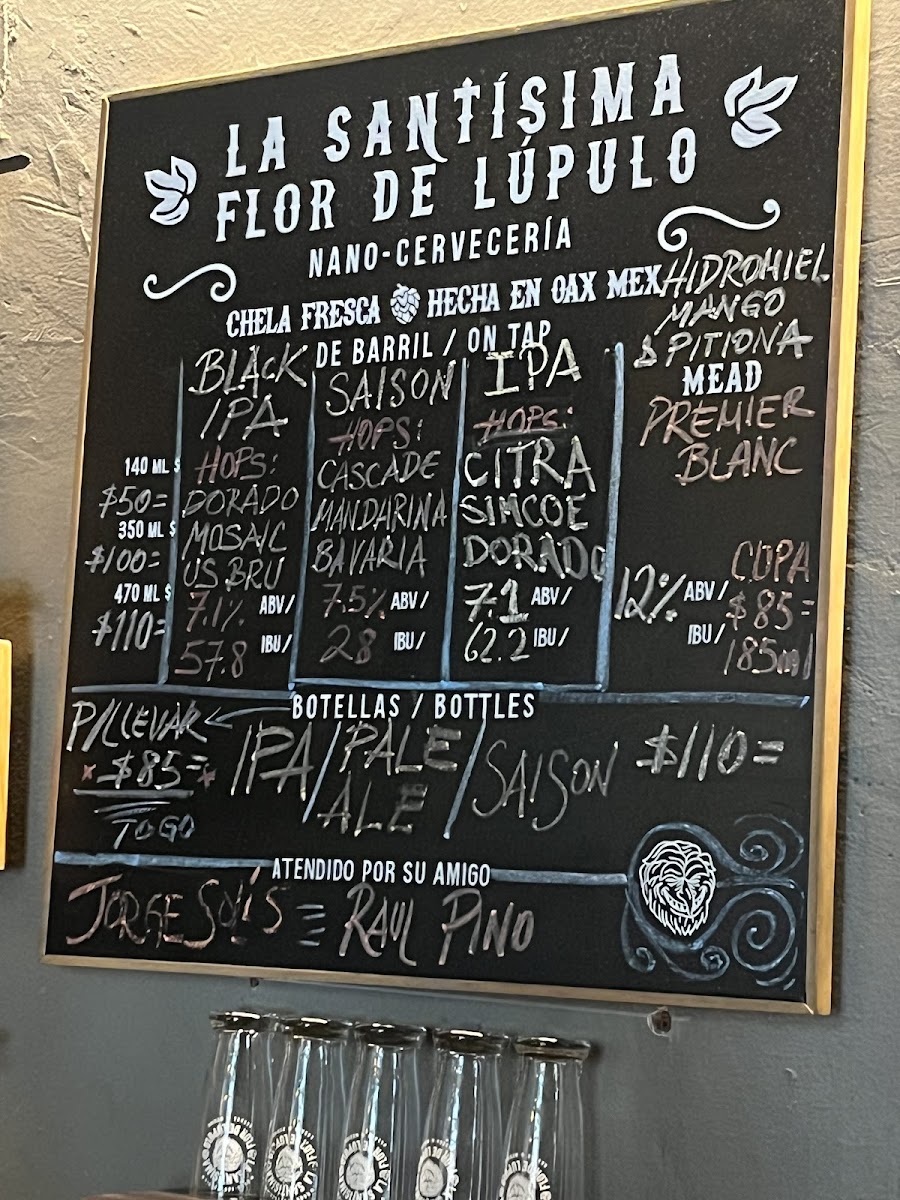 LA SANTÍSIMA
FLOR DE LÚPULO
NANO-CERVECERÍA
CHELA FRESCA HECHA EN OAX MEX
DE BARRIL / ON TAP
BLACK
IPA
HOPS:
DORADO
MOSAIC
US. BRU
7.1% ABV/
57.8 IBU/
SAISON
HOPS:
CASCADE
MANDARINA
BAVARIA
7.5% ABV/
28 IBU/
IPA
HOPS:
CITRA
SIMCOE
DORADO
7.1 ABV/
62.2 IBU/
HIDROMIEL
MANGO
& PITIONA
MEAD
PREMIER
BLANC
12% ABV/
IBU/
COPA
$85=
185ml
140 ML $
$50=
350 ML $
$100=
470 ML $
$110=
BOTELLAS / BOTTLES
P/LLEVAR
* $85= *
TO GO
IPA/PALE ALE/SAISON $110=
ATENDIDO POR SU AMIGO
JORGE SOLÍS = RAUL PINO